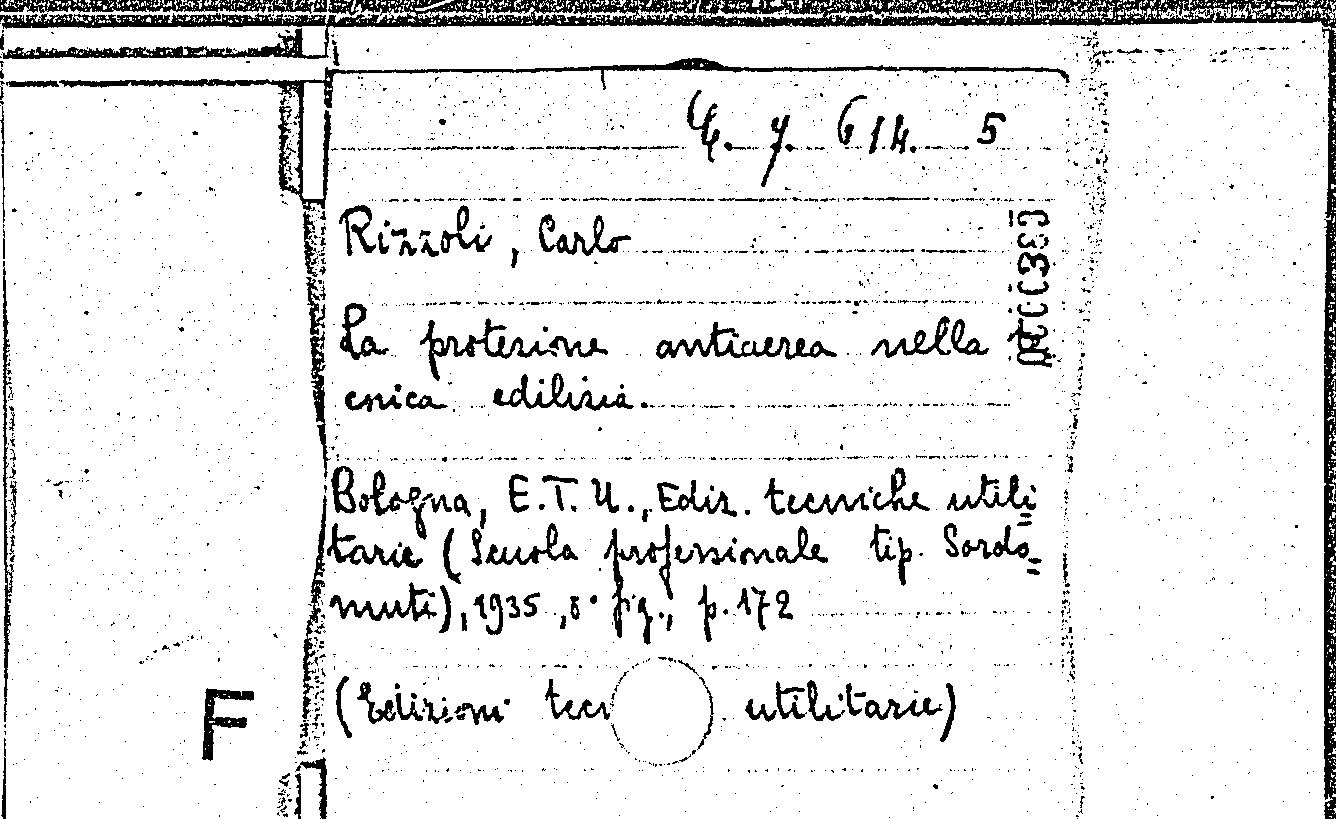 614. 5
Rizzoli, Carlo
La protezione antiaerea nella
cnica edilizia.
Bologna, E.T.U., Ediz. tecniche utili
tarie (Scuola professionale tip. Sordo
muti), 1935, 8° fig., p. 172
(Edizioni tecn utilitarie)
F